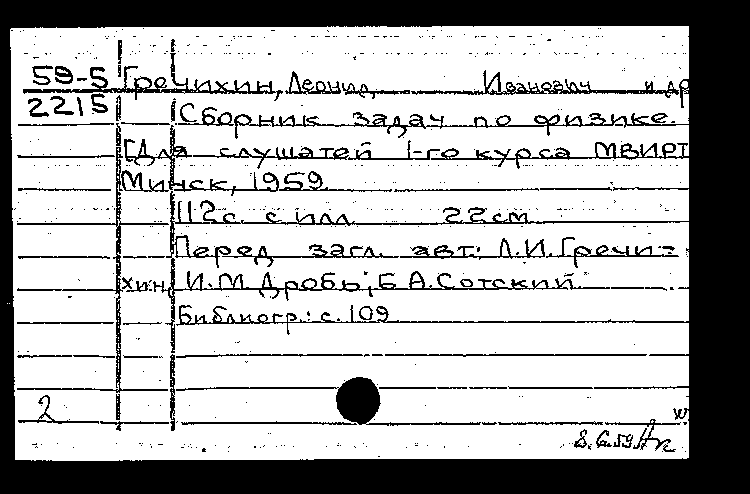 59-5 Гречихин, Леонид Иванович и др
2215 Сборник задач по физике.
[Для слушатей 1-го курса МВИРТ
Минск, 1959.
112с. с илл. 22см
Перед загл. авт.: Л.И. Гречи=
хин, И.М. Дробь; Б.А. Сотский.
Библиогр.: с. 109
2